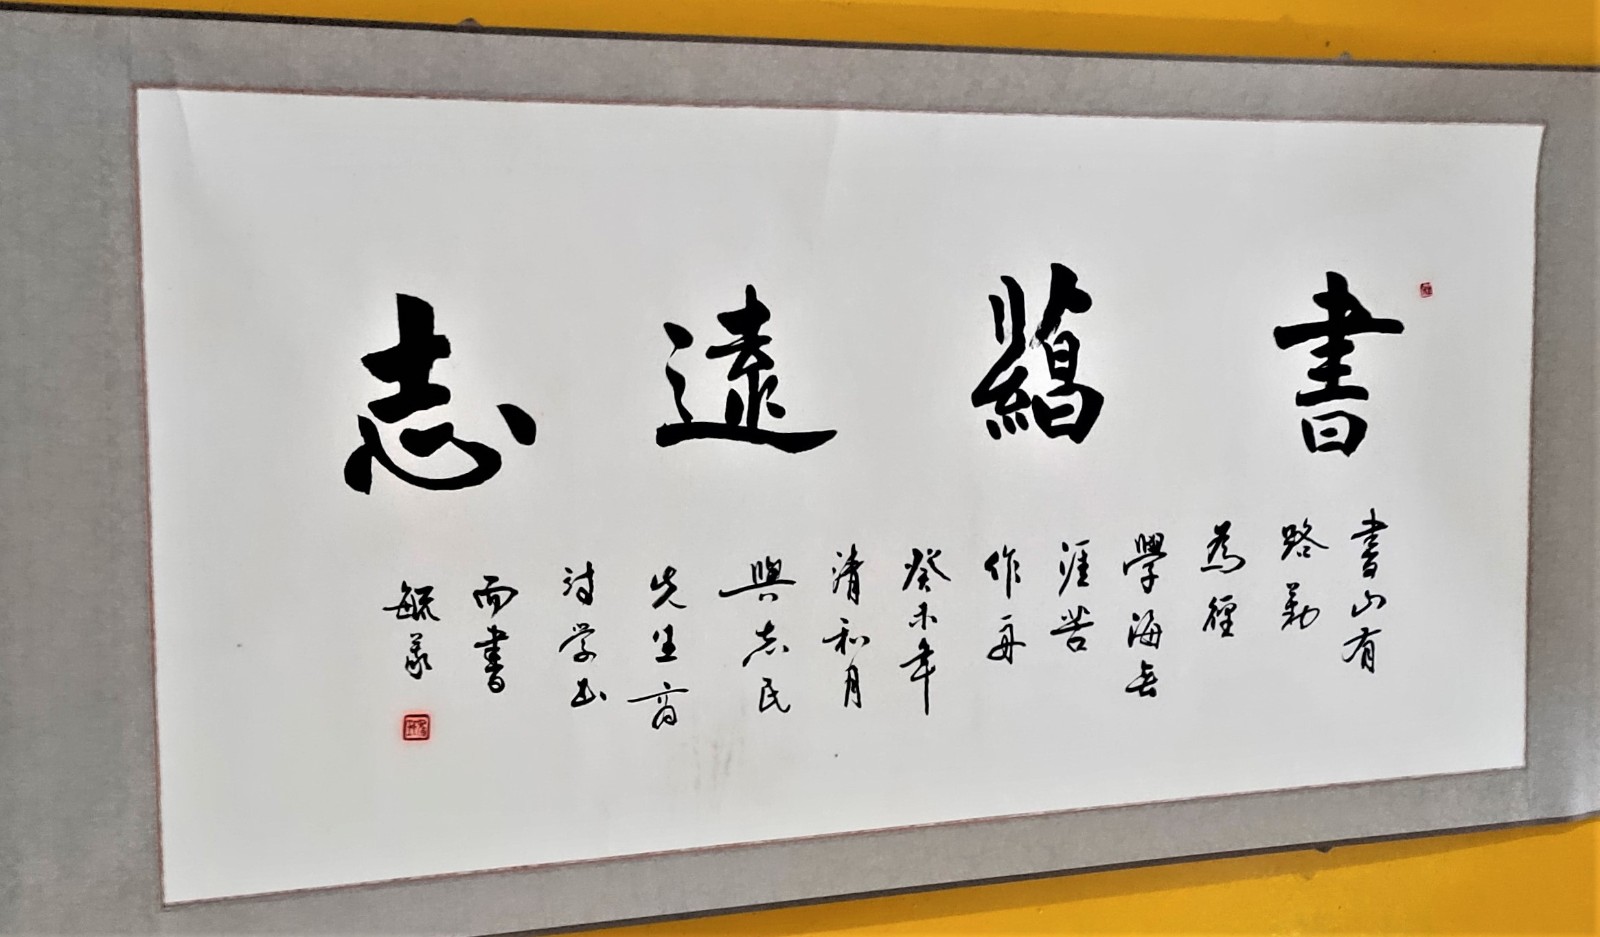 書藴遠志
書山有
路勤
為徑
學海無
涯苦
作舟
癸未年
清和月
與志民
先生商
討学
而書
毓